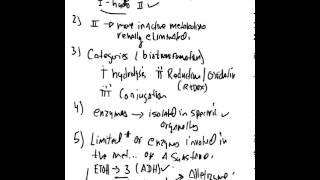 I - have II ✓
2) II → more inactive metabolites
renally eliminated.
3) Categories (biotransformation)
i hydrolysis ii Reduction/Oxidation
(REDOX)
iii Conjugation
4) enzymes → isolated in specific ✓
organelles
5) Limited # of enzymes involved in
the met... of a substance.
ETOH → 3 (ADH) ✓